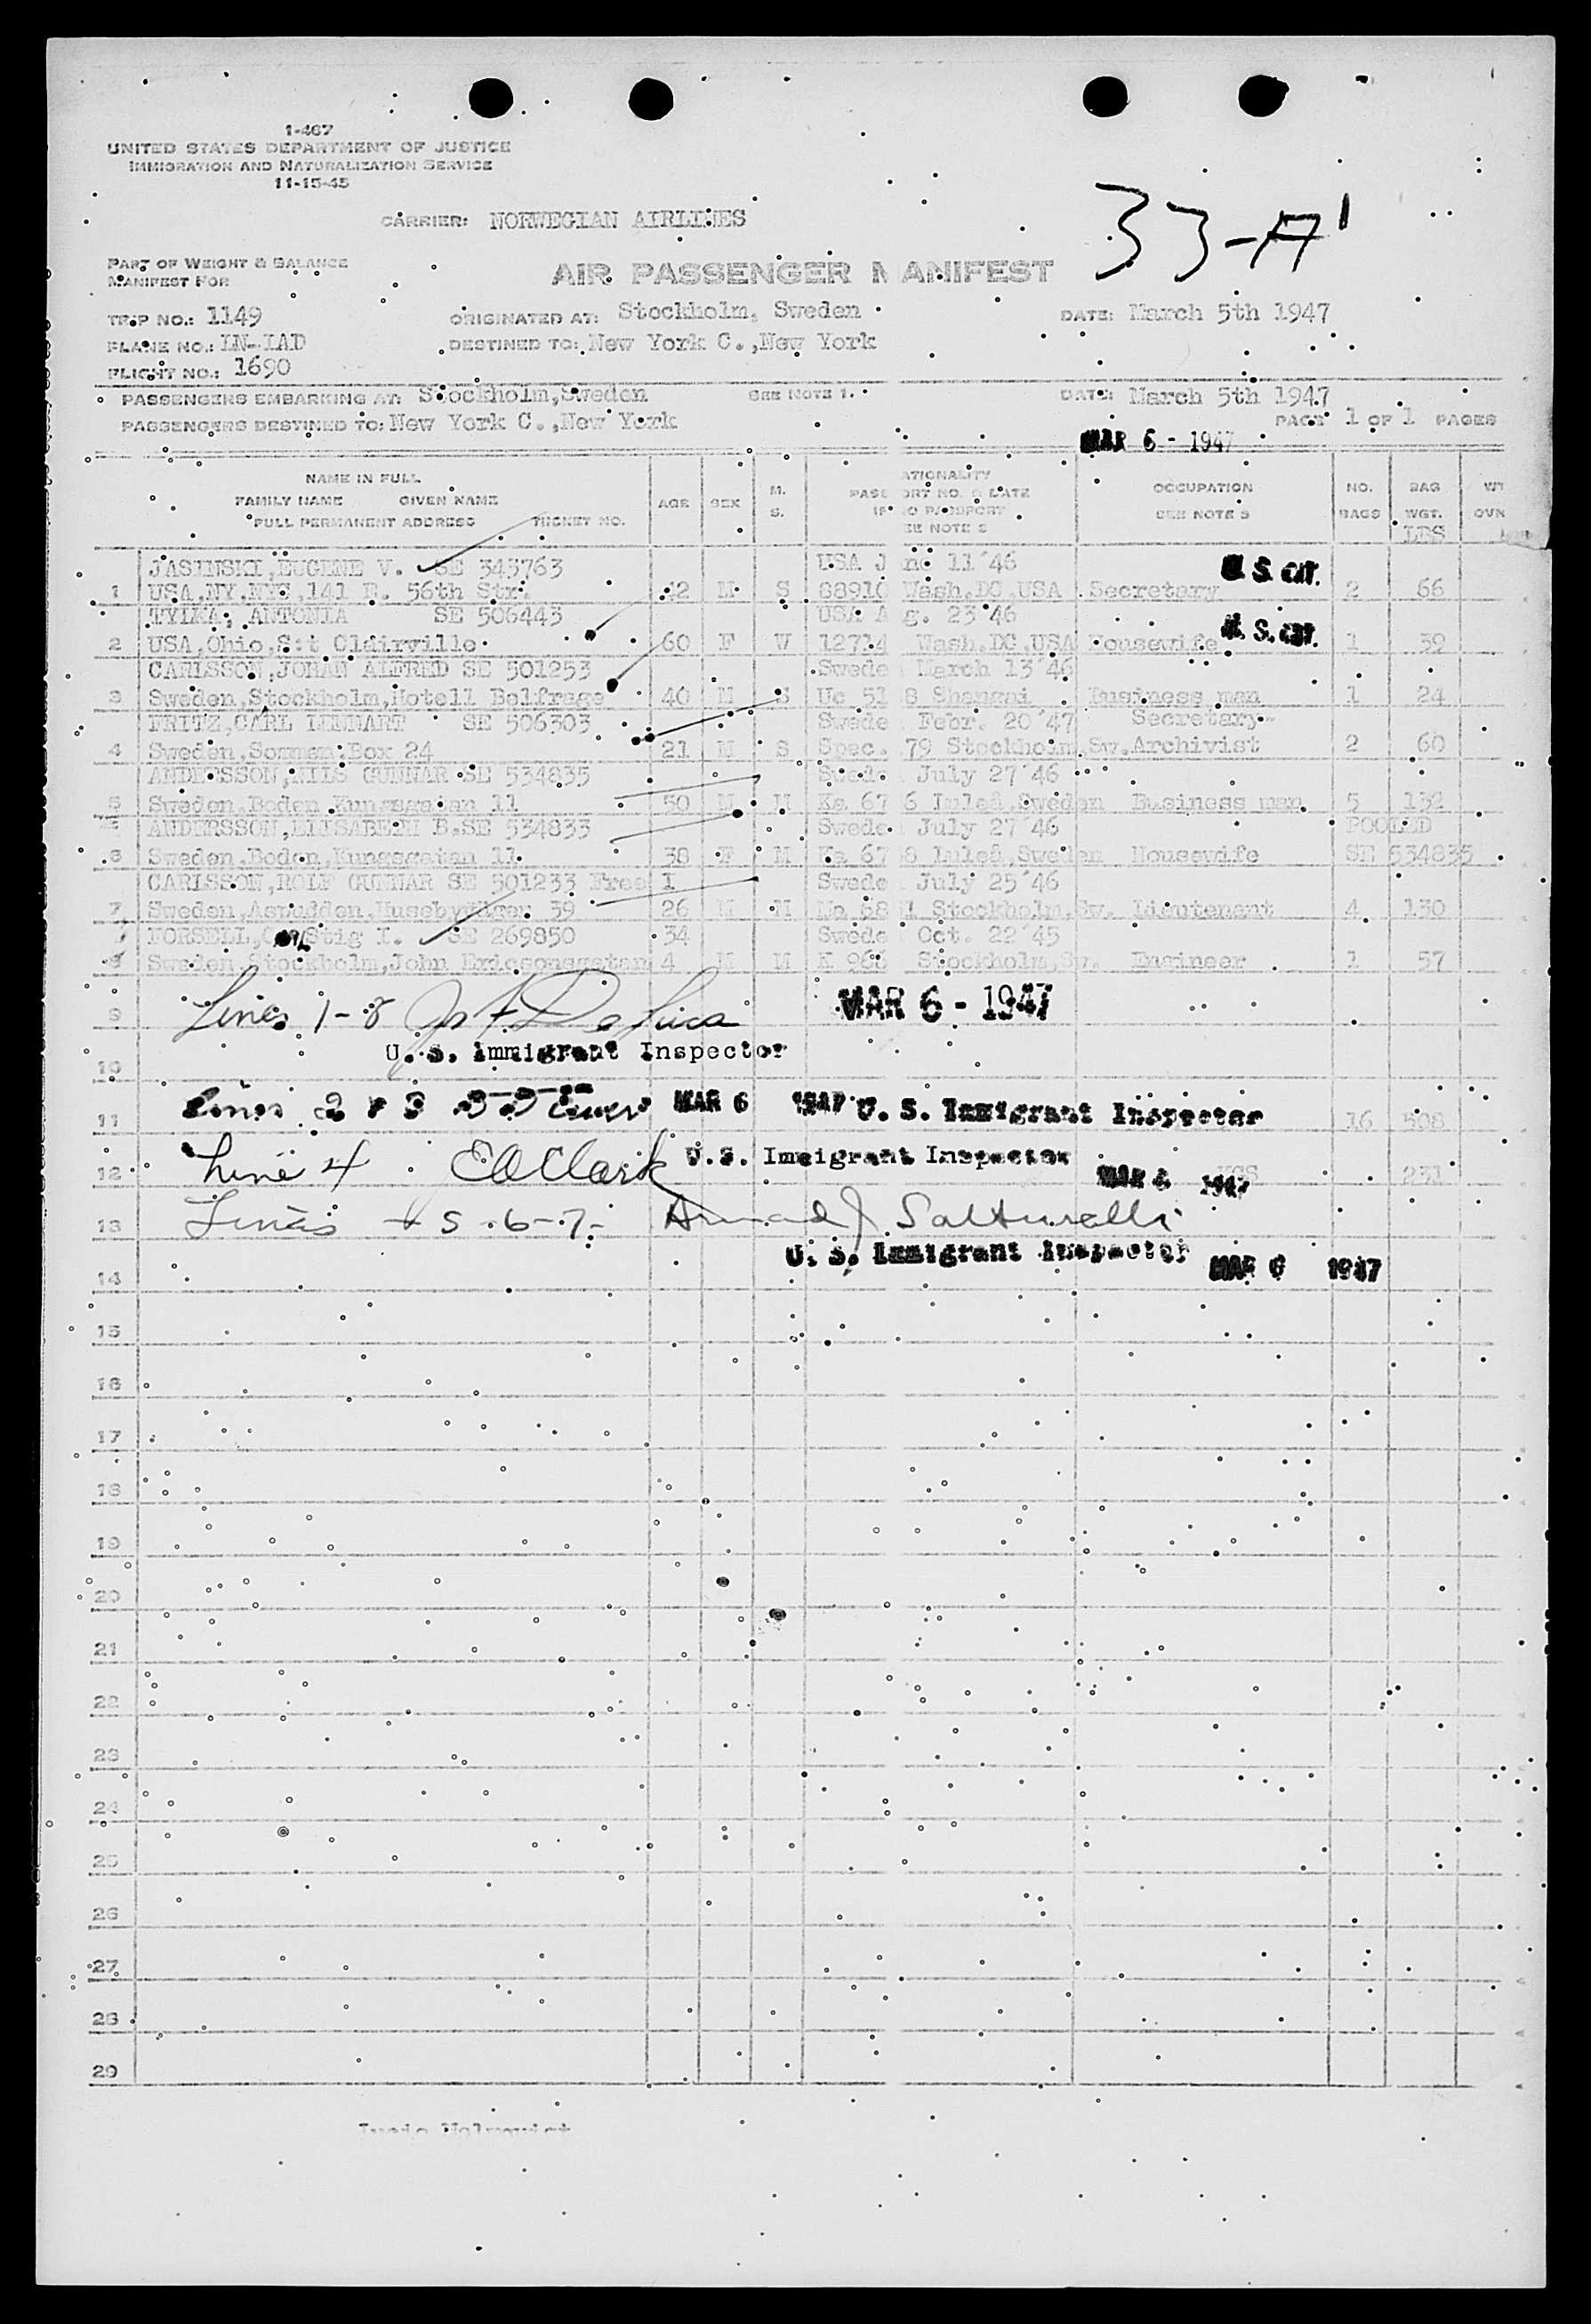 1-467
UNITED STATES DEPARTMENT OF JUSTICE
IMMIGRATION AND NATURALIZATION SERVICE
11-15-45
33-A'
CARRIER: NORWEGIAN AIRLINES
PART OF WEIGHT & BALANCE
MANIFEST FOR
AIR PASSENGER MANIFEST
TRIP NO.: 1149 ORIGINATED AT: Stockholm, Sweden DATE: March 5th 1947
PLANE NO.: LN-IAD DESTINED TO: New York C.,New York
FLIGHT NO.: 1690
PASSENGERS EMBARKING AT: Stockholm,Sweden SEE NOTE 1. DATE: March 5th 1947
PASSENGERS DESTINED TO: New York C.,New York PAGE 1 OF 1 PAGES
MAR 6 - 1947
NAME IN FULL
FAMILY NAME GIVEN NAME
FULL PERMANENT ADDRESS TICKET NO.
AGE SEX M. S.
NATIONALITY
PASSPORT NO. & DATE
IF NO PASSPORT
SEE NOTE 2
OCCUPATION
SEE NOTE 3
NO. BAGS
BAG WGT. LBS
WT OVN
JASINSKI,EUGENE V. SE 343763 USA June 11 '46 U. S. CIT.
1 USA,NY,NYC,141 E. 56th Str. 42 M S 88910 Wash.DC.USA Secretary 2 66
TYLKA, ANTONIA SE 506443 USA Aug. 23 '46 U. S. CIT.
2 USA,Ohio,S:t Clairville 60 F W 12714 Wash.DC.USA Housewife 1 39
CARLSSON,JOHAN ALFRED SE 501253 Swede March 13 '46
3 Sweden,Stockholm,Hotell Belfrage 40 M S Uc 51 8 Shangai Business man 1 24
FRITZ,CARL LENNART SE 506303 Swede Febr. 20 '47 Secretary
4 Sweden,Sommen,Box 24 21 M S Spec. 79 Stockholm,Sw. Archivist 2 60
ANDERSSON,NILS GUNNAR SE 534835 Swede July 27 '46
5 Sweden,Boden,Kungsgatan 11 50 M M Ka 67 6 Luleå,Sweden Business man 5 132
ANDERSSON,ELISABETH B.SE 534833 Swede July 27 '46 POOLED
6 Sweden,Boden,Kungsgatan 11 38 F M Ka 67 8 Luleå,Sweden Housewife SE 534835
CARLSSON,ROLF GUNNAR SE 501233 Free I Swede July 25 '46
7 Sweden,Aspudden,Husebyvägen 39 26 M M 68 Stockholm,Sw. Lieutenant 4 130
FORSELL, Stig I. SE 269850 34 Swede Oct. 22 '45
8 Sweden,Stockholm,John Ericsonsgatan 4 M M K 268 Stockholm,Sw. Engineer 1 57
9 Lines 1-8 MAR 6 - 1947
U. S. Immigrant Inspector
10
11 Lines 2 & 3 MAR 6 1947 U. S. Immigrant Inspector 16 508
12 Line 4 E A Clark U.S. Immigrant Inspector MAR 6 1947 KGS 231
13 Lines 5-6-7- Armand J Salturelli
U. S. Immigrant Inspector MAR 6 1947
14
15
16
17
18
19
20
21
22
23
24
25
26
27
28
29